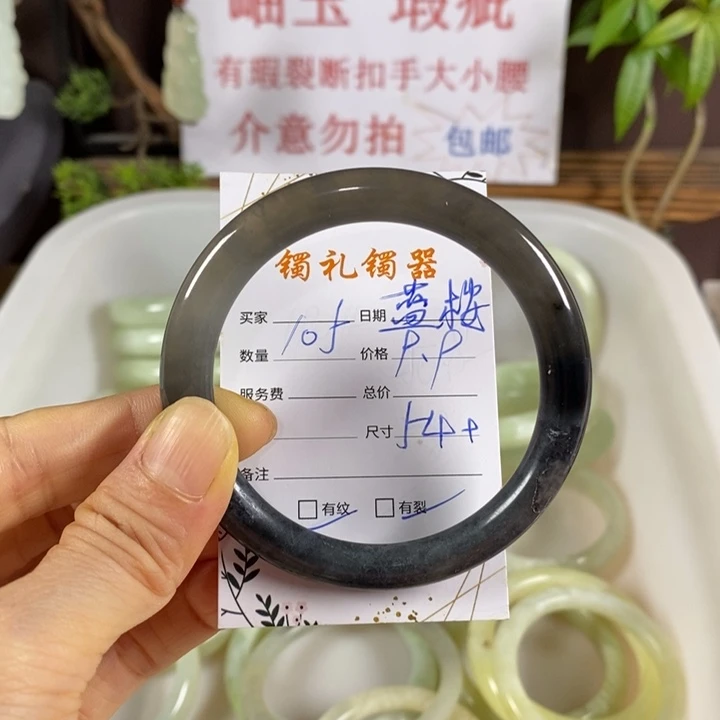 岫玉 瑕疵
有瑕裂断扣手大小腰
介意勿拍 包邮
镯礼镯器
买家 105 日期
数量 价格 9.9
服务费 总价
尺寸 54+
备注
有纹 有裂